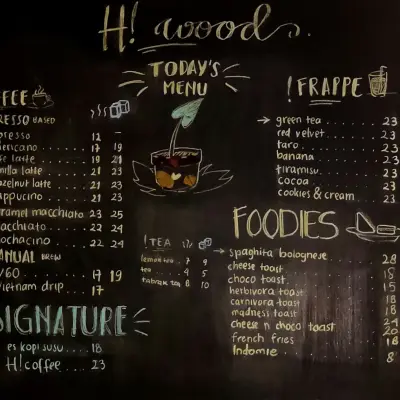 H! woods.
TODAY'S
MENU
FFEE
RESSO BASED
presso 12 -
ericano 17 19
fe latte 19 21
nilla latte 21 23
azelnut latte 21 23
appucino 21 23
aramel macchiato 23 25
acchiato 22 24
ochacino 22 24
ANUAL BREW
V60 17 19
ietnam drip 17
SIGNATURE
es kopi susu 18
H!coffee 23
!TEA
lemon tea 7 9
tea 4 5
8 10
!FRAPPE
green tea 23
red velvet 23
taro 23
banana 23
tiramisu 23
cocoa 23
cookies & cream 23
FOODIES
spaghita bolognese 28
cheese toast 18
choco toast 15
herbivora toast 18
carnivora toast 18
madness toast 24
cheese n choco toast 20
french fries 18
Indomie 8